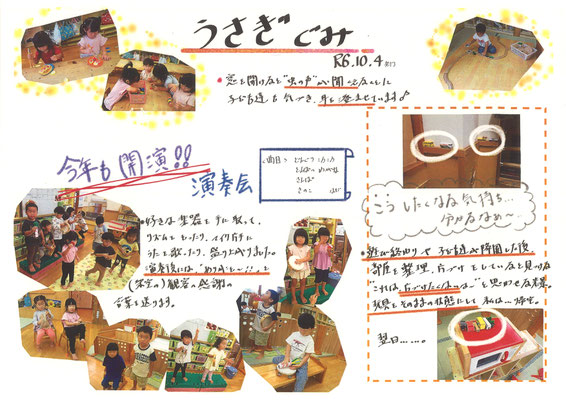 うさぎぐみ
R6.10.4 発行
窓を開けると"虫の声"が聞こえました
子ども達も気づき、耳を澄ませています♪
今年も開演!!
演奏会
曲目
どんぐり
とんぼの めがね
さんぽ
きのこ
こうしたくなる気持ち…
分かるなぁ〜
・好きな楽器を手に取って、
リズムをとったり、マイク片手に
うたを歌ったり、盛り上がりました。
演奏後には、"ありがと〜!!"と
観客の感謝の
言葉を送ります。
・遊び終わりや子ども達が降園した後
部屋を整理、片づけをしていると見つける
"これは、片づけたくないな"と思わせる光景。
玩具をそのままの状態にして私は…帰宅。
翌日……。